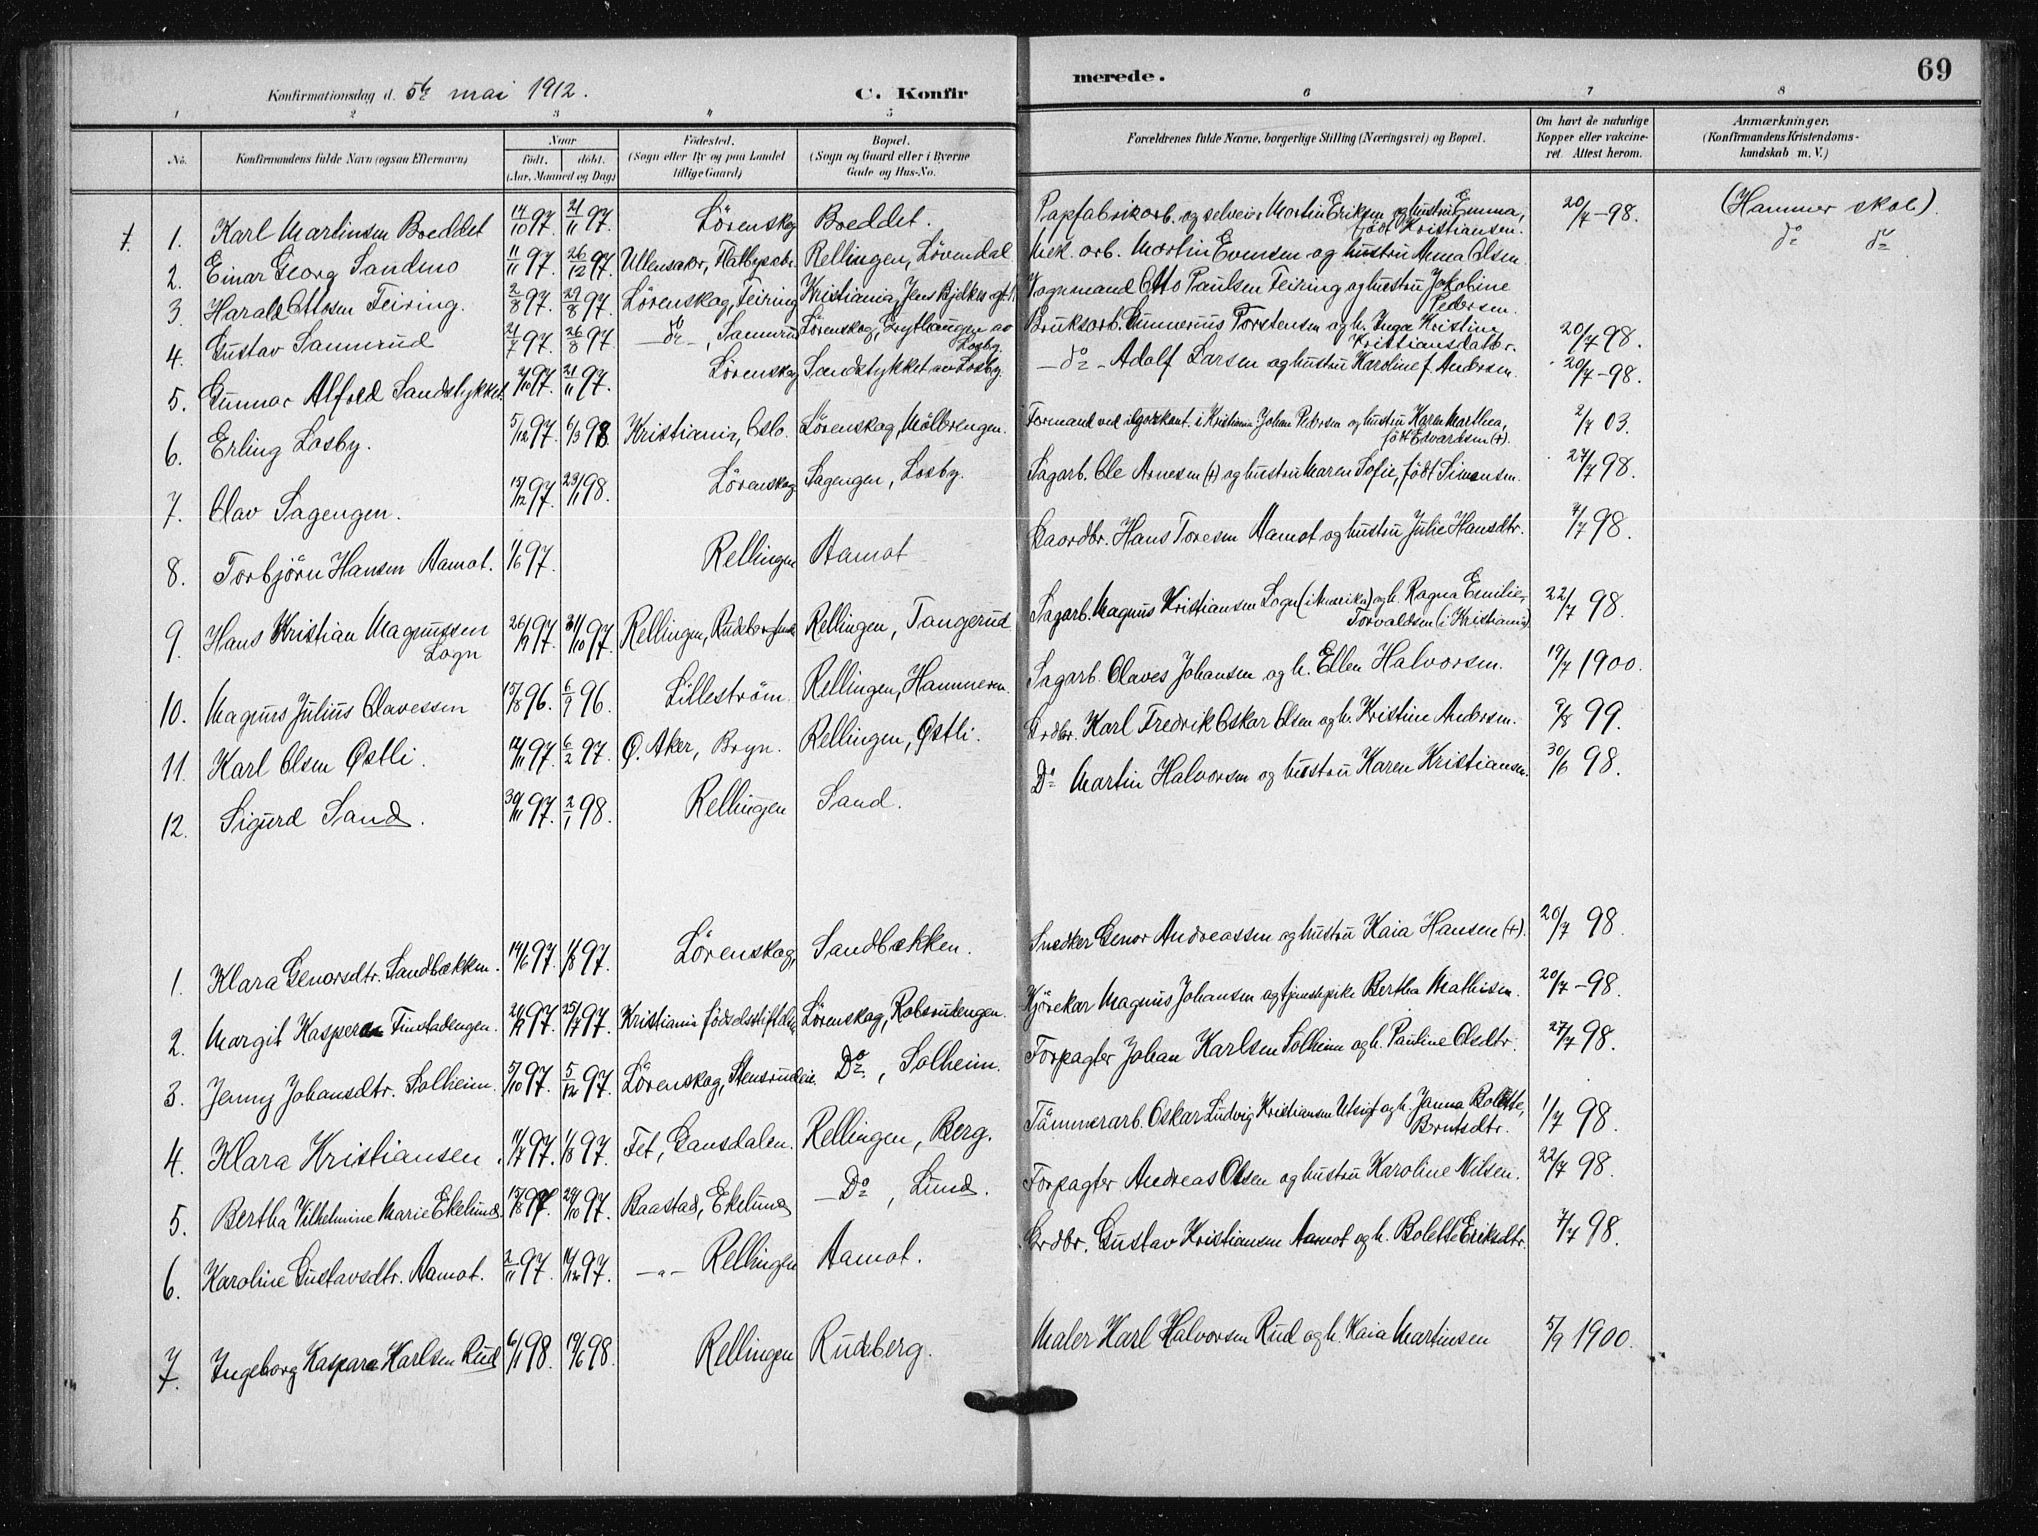 69
Konfirmationsdag d. 5te mai 1912. C. Konfirmerede.
1 2 3 4 5 6 7 8
No. Konfirmandens fulde Navn (ogsaa Efternavn) Naar født. døbt. (Aar, Maaned og Dag) Fødested. (Sogn eller By og paa Landet tillige Gaard) Bopæl. (Sogn og Gaard eller i Byerne Gade og Hus-No. Forældrenes fulde Navne, borgerlige Stilling (Næringsvei) og Bopæl. Om havt de naturlige Kopper eller vaccineret. Attest herom. Anmærkninger. (Konfirmandens Kristendomskundskab m. V.)
1. Karl Martinsen Breddet 14/10 97. 21/11 97. Lörenskog Breddet. Papfabrikarb. og selveier Martin Eriksen og hustru Emma, født Kristiansen. 20/7-98. (Hammer skole).
2. Einar Georg Sandmo 11/11 97. 26/12 97. Ullensaker, Rellingen, Lövendal Mek. arb. Martin Evensen og hustru Anna Olsen. do do
3. Harald Ottosen Feiring. 2/8 97. 29/8 97. Lörenskog, Feiring Kristiania, Jens Bjelkes gt. Vognmand Otto Paulsen Feiring og hustru Jakobine Pedersen.
4. Gustav Sannerud 2/7 97. 26/8 97. -do-, Sannerud Lörenskog, av Losby. Bruksarb. Gunnerius Torstensen og h. Inga Kristine Kristiansdatter. 20/7 98.
5. Gunnar Alfred Sandstykket 2/10 97. 21/11 97. Lörenskog Sandstykket av Losby. -do- Adolf Larsen og hustru Karoline f. Andersen. 20/7-98.
6. Erling Losby. 5/12 97. 6/3 98 Kristiania, Oslo. Lörenskog, Mölleengen. Formand ved i Kristiania Johan Pedersen og hustru Karen Marthea, født Edvardsen (+). 2/7 03.
7. Olav Sagengen. 15/12 97. 23/1 98. Lörenskog Sagengen, Losby. Sagarb. Ole Arnesen (+) og hustru Maren Sofie, født Simensen. 27/7 98.
8. Torbjörn Hansen Aamot. 1/6 97. Rellingen Aamot Gaardbr. Hans Toresen Aamot og hustru Julie Hansdtr. 7/7 98.
9. Hans Kristian Magnussen Logn 26/9 97 31/10 97. Rellingen, Rellingen, Tangerud Sagarb. Magnus Kristiansen Logn (i Amerika) og h. Ragna Emilie Torvaldsen (i Kristiania) 22/7 98.
10. Magnus Julius Olavessen 15/8 96. 6/9 96. Lilleström. Rellingen, Hammeren. Sagarb. Olaves Johansen og h. Ellen Halvorsen. 19/7 1900.
11. Karl Olsen Østli. 12/11 97. 6/2 97. Ø. Aker, Bryn. Rellingen, Østli. Grdbr. Karl Fredrik Oskar Olsen og h. Kristine Andersen. 9/8 99.
12. Sigurd Sand. 30/11 97. 2/1 98. Rellingen Sand. Do Martin Halvorsen og hustru Karen Kristiansen. 30/6 98.
1. Klara Genorsdtr. Sandbækken. 14/6 97. 1/8 97. Lörenskog, Sandbækken. Snedker Genor Andreassen og hustru Kaia Hansen (+). 20/7 98.
2. Margit Kaspara Finstadengen. 97. 25/7 97. Kristiania födselsstiftelse Lörenskog, Robsrudengen. Kjørekar Magnus Johansen og tjenestepike Bertha Mathisen. 20/7-98.
3. Jenny Johansdtr. Solheim. 5/10 97. 5/12 97. Lörenskog, Stensrudeie. Do, Solheim. Forpagter Johan Karlsen Solheim og h. Pauline Olsdtr. 27/7 98.
4. Klara Kristiansen. 11/7 97. 1/8 97. Fet, Gansdalen. Rellingen, Berg. Tømmerarb. Oskar Ludvig Kristiansen Utsigt og h. Janna Bolette Berntsdtr. 1/7 98.
5. Bertha Vilhelmine Marie Ekelund. 15/8 97. 24/10 97. Baastad, Ekelund -Do, Lund. Forpagter Andreas Olsen og hustru Karoline Nilsen. 22/7 98.
6. Karoline Gustavsdtr. Aamot. 2/11 97. 97. -"- Rellingen Aamot. Grdbr. Gustav Kristiansen Aamot og h. Bolette Eriksdtr. 7/7 98.
7. Ingeborg Kaspara Karlsen Rud 6/1 98. 19/6 98. Rellingen Rudsberg. Maler Karl Halvorsen Rud og h. Kaia Martinsen 5/9 1900.